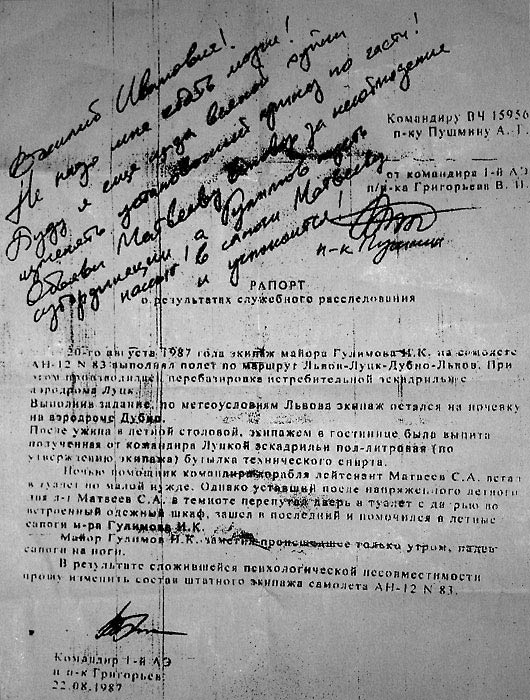 Василий Иванович!
Не надо мне ебать мозги!
Буду я ещё из-за всякой хуйни
изменять установленный приказ по части!
Объяви Матвееву выговор за несоблюдение
субординации а Гулимов пусть
нассыт в сапоги Матвееву
и успокоится!
п-к Пушмин
Командиру ВЧ 15956
п-ку Пушмину А. Г.
от командира 1-й АЭ
п/п-ка Григорьева В. И
РАПОРТ
о результатах служебного расследования
20-го августа 1987 года экипаж майора Гулимова И.К. на самолете
АН-12 N 83 выполнял полет по маршруту Львов-Луцк-Дубно-Львов. При
этом производилась перебазировка истребительной эскадрильи с
аэродрома Луцк.
Выполнив задание, по метеоусловиям Львова экипаж остался на ночевку
на аэродроме Дубно.
После ужина в летной столовой, экипажем в гостинице была выпита
полученная от командира Луцкой эскадрильи пол-литровая (по
утверждению экипажа) бутылка технического спирта.
Ночью помощник командира корабля лейтенант Матвеев С.А. встал
в туалет по малой нужде. Однако уставший после напряженного летного
дня л-т Матвеев С.А. в темноте перепутал дверь в туалет с дверью во
встроенный одежный шкаф, зашел в последний и помочился в летные
сапоги м-ра Гулимова И.К.
Майор Гулимов И.К. заметил происшедшее только утром, надев
сапоги на ноги.
В результате сложившейся психологической несовместимости
прошу изменить состав штатного экипажа самолета АН-12 N 83.
Командир 1-й АЭ
п п-к Григорьев
22.08.1987